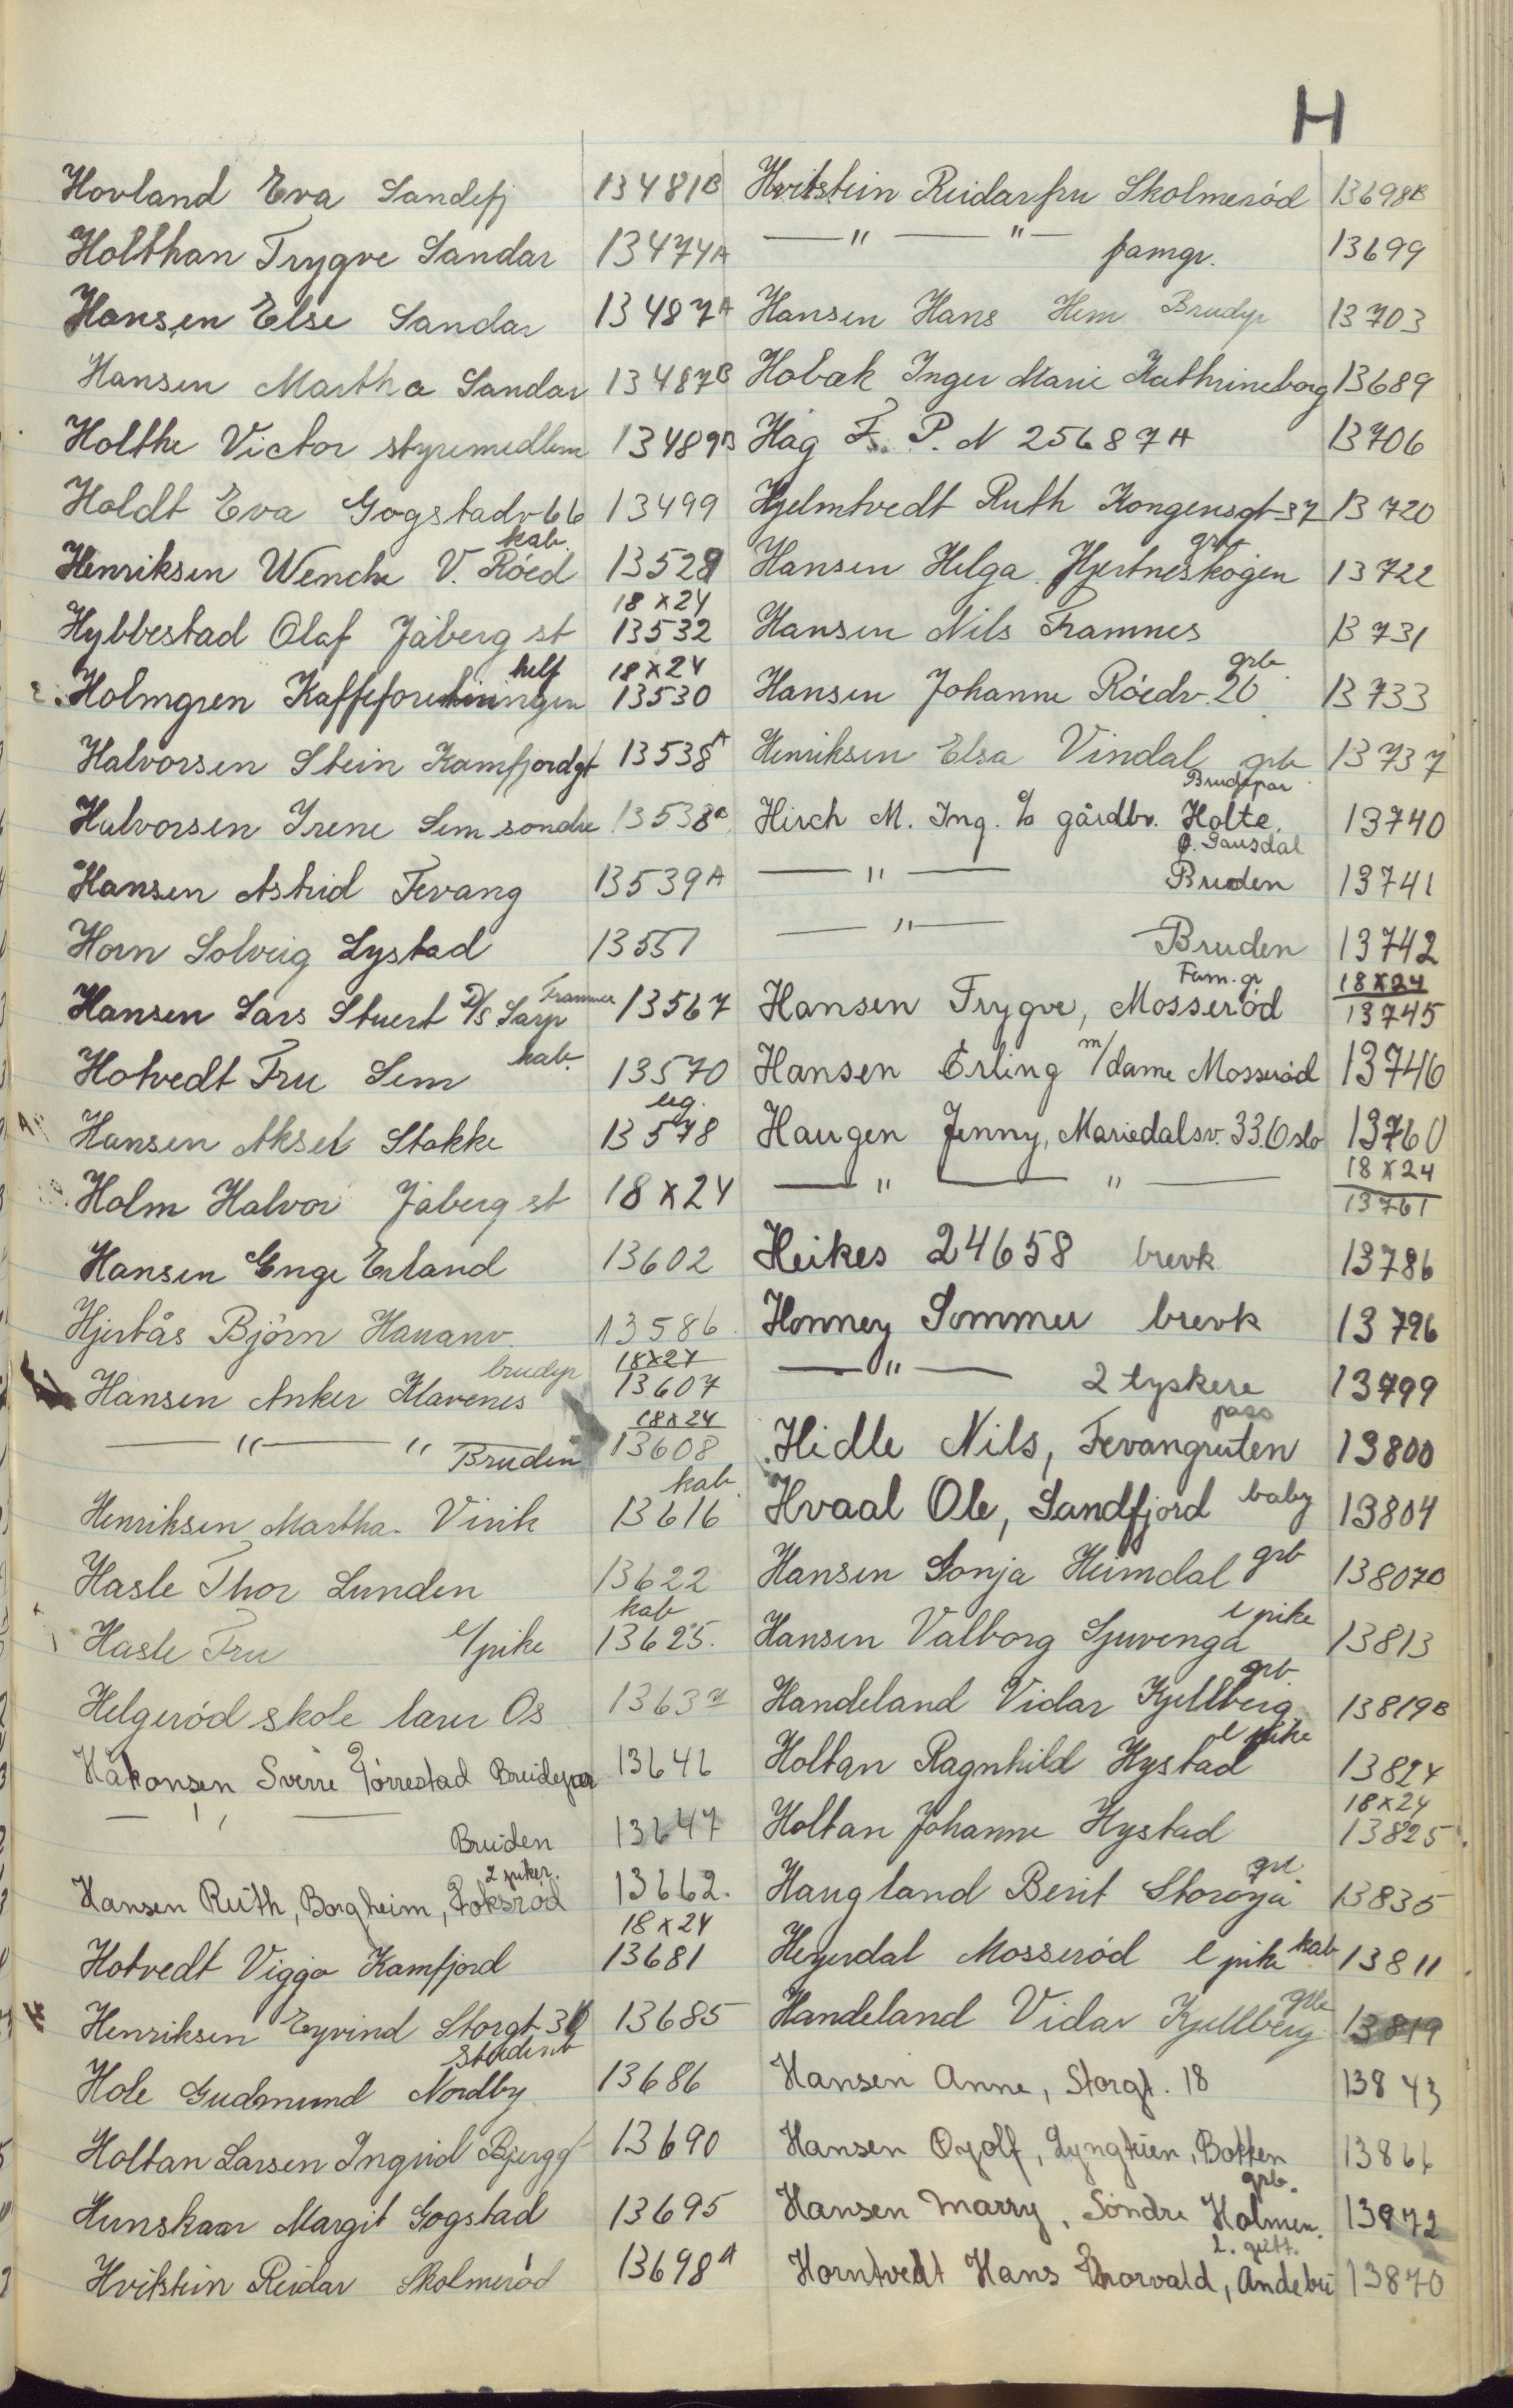 H
Hovland Eva Sandefj 13481B
Holthan Trygve Sandar 13474A
Hansen Else Sandar 13487A
Hansen Martha Sandar 13487B
Holthe Victor styremedlem 13489B
Holdt Eva Gogstadv 66 13499
kab.
Henriksen Wenche V. Röed 13528
18x24
Hybbestad Olaf Jåberg st 13532
helf 18x24
Holmgren Kaffeforretningen 13530
Halvorsen Stein Kamfjordgt 13538A
Halvorsen Irene Sem söndre 13538B
Hansen Astrid Fevang 13539A
Horn Solveig Lystad 13551
Hansen Lars Stuert D/S Sarp Framnes 13567
Hotvedt Fru Sem kab. 13570
leg.
Hansen Aksel Stokke 13578
Holm Halvor Jåberg st 18x24
Hansen Enge Erland 13602
Hjertås Björn Hauanv. 13586
brudep 18x24
Hansen Anker Klavenes 13607
18x24
— " — " Bruden 13608
kab.
Henriksen Martha Virik 13616
Hasle Thor Lunden 13622
kab
Hasle Fru l/pike 13625.
Helgeröd skole lærer Os 13637
Håkonsen Sverre Törrestad Brudepar 13646
— " — Bruden 13647
2 piker.
Hansen Ruth, Borgheim, Foksröd 13662.
18x24
Hotvedt Viggo Kamfjord 13681
Henriksen Eyvind Storgt 36 13685
student
Hole Gudmund Nordby 13686
Holtan Larsen Ingrid Bjergg 13690
Hunskaar Margit Gogstad 13695
Hvitstein Reidar Skolmeröd 13698A
Hvitstein Reidar fru Skolmeröd 13698B
— " — " — famgr. 13699
Hansen Hans Hem Brudep 13703
Hobæk Inger Marie Kathrineborg 13689
Håg F. P. N 25687A 13706
Hjelmtvedt Ruth Kongensgt 37 13720
grb
Hansen Helga Hjertneskogen 13722
Hansen Nils Framnes 13731
grb.
Hansen Johanne Röedv. 20 13733
Henriksen Elsa Vindal grb 13737
Brudepar
Hirch M. Ing. c/o gårdbr. Holte. 13740
Ø. Gausdal
— " — Bruden 13741
— " — Bruden 13742
Fam. gr 18x24
Hansen Trygve, Mosseröd 13745
Hansen Erling m/dame Mosseröd 13746
Haugen Jenny, Mariedalsv. 33. Oslo 13760
18x24
— " — " — 13761
Heikes 24658 brevk 13786
Honney Sommer brevk 13796
— " — 2 tyskere 13799
pass
Hidle Nils, Fevangruten 13800
Hvaal Ole, Sandfjord baby 13804
Hansen Sonja Heimdal grb 13807B
l pike
Hansen Valborg Sjuvenga 13813
grb.
Handeland Vidar Kjellberg 13819B
l pike
Holtan Ragnhild Hystad 13824
18x24
Holtan Johanne Hystad 13825
grb.
Haugland Berit Storöya 13835
Heyerdal Mosseröd l pike kab 13811
grb
Handeland Vidar Kjellberg 13819
Hansen Anne, Storgt. 18 13843
Hansen Oyolf, Lyngtuen, Botten 13866
grb.
Hansen Marry, Söndre Holmen. 13872
l. gutt.
Horntvedt Hans Thorvald, Andebu 13870